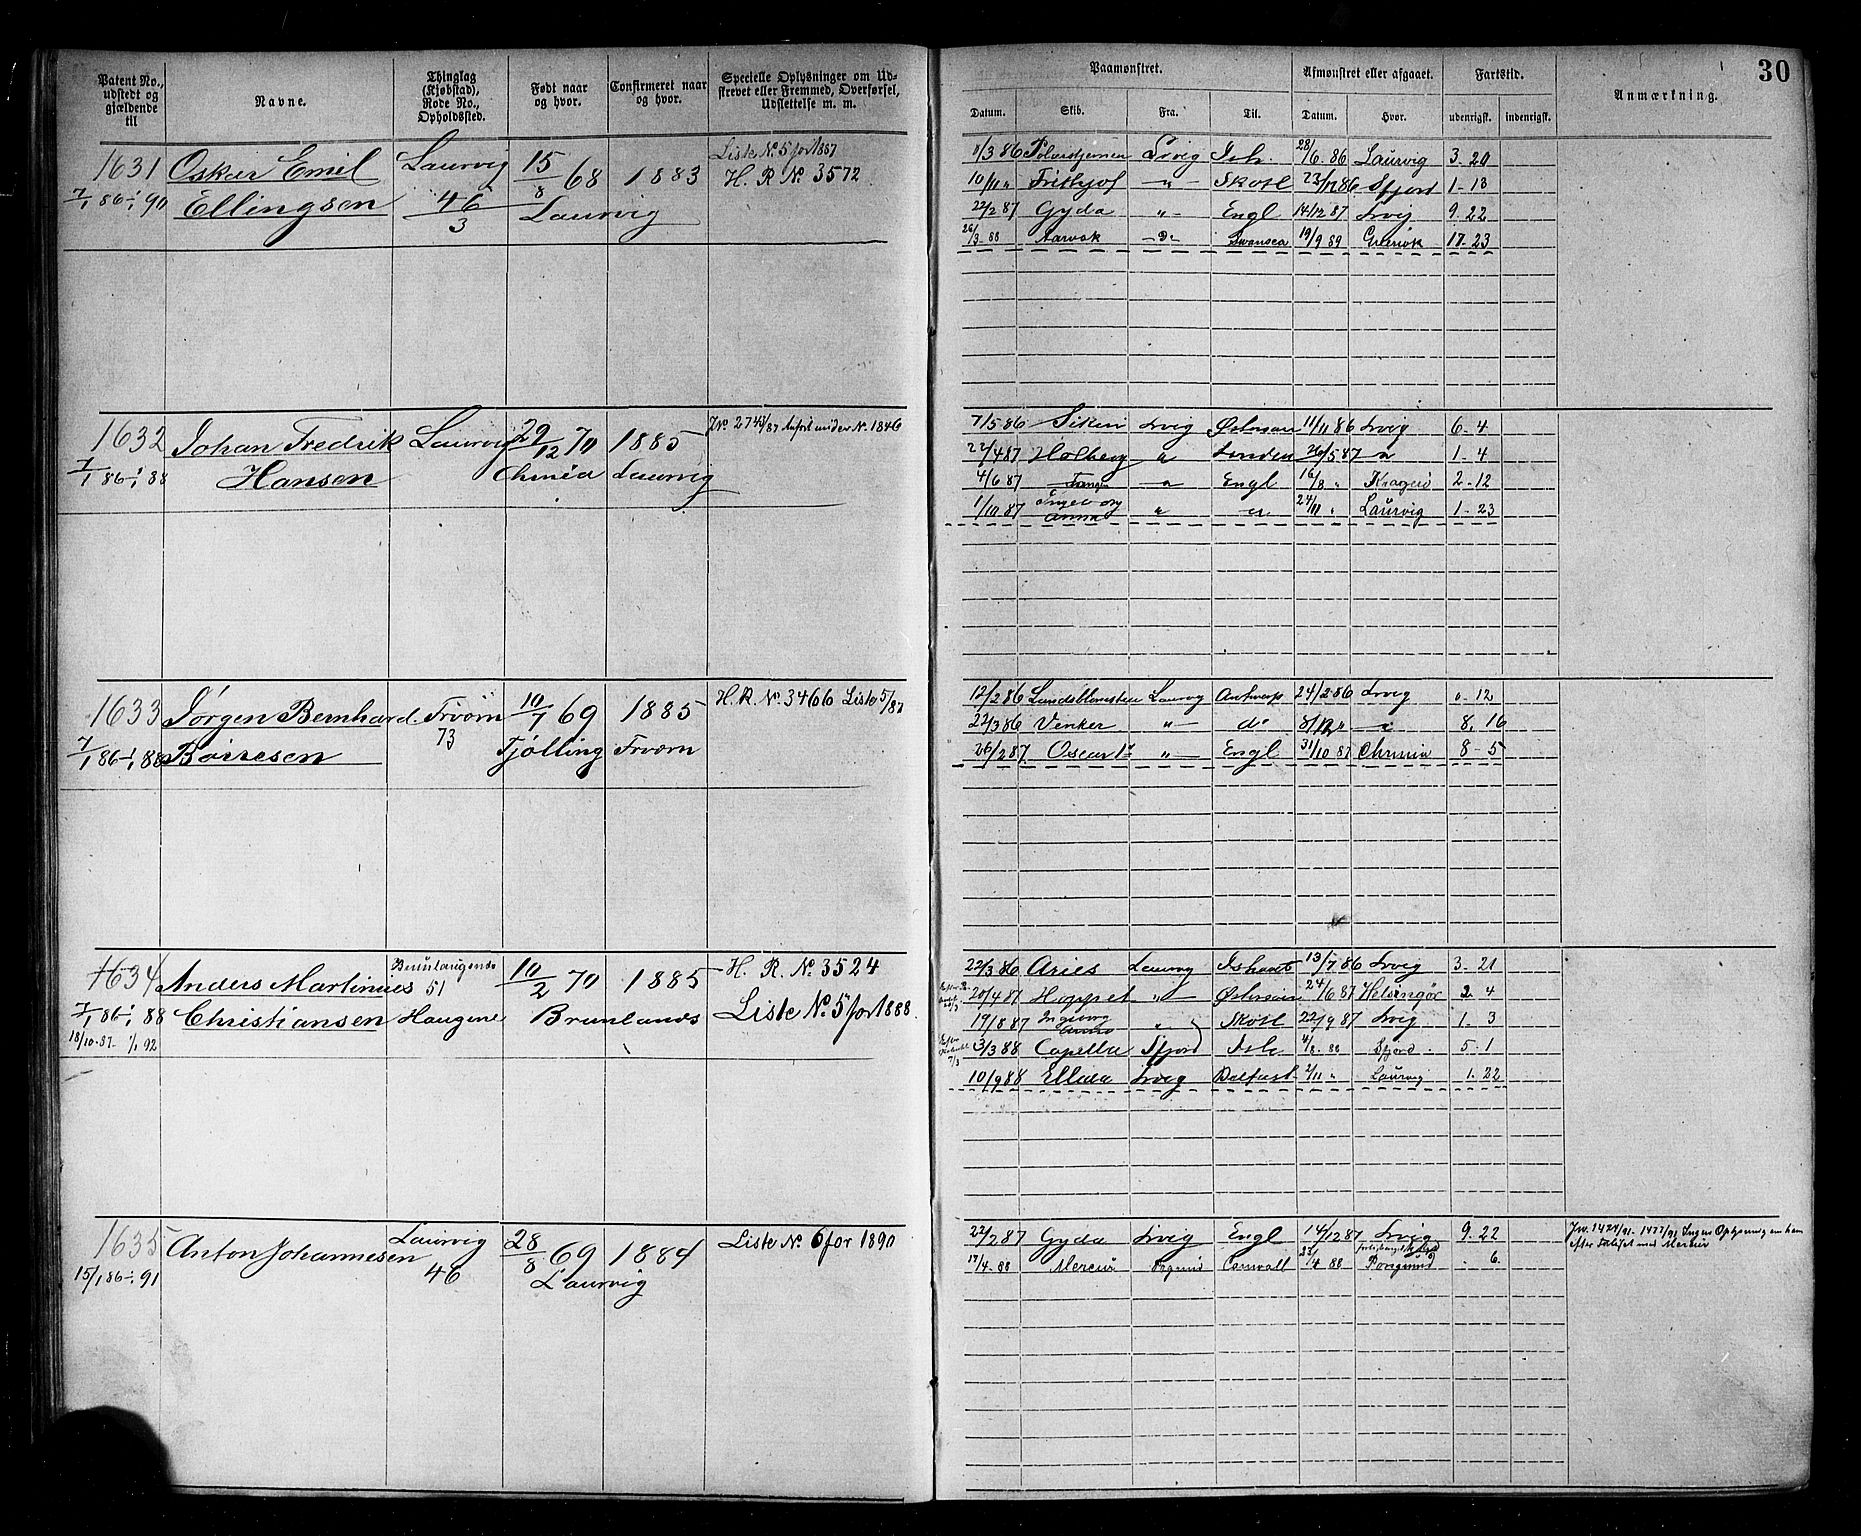 30
Patent No., udstedt og gjældende til
Navne.
Thinglag (Kjøbstad), Rode No., Opholdssted.
Født naar og hvor.
Confirmeret naar og hvor.
Specielle Oplysninger om Udskrevet eller Fremmed, Overførsel, Udslettelse m. m.
Paamønstret.
Afmønstret eller afgaaet.
Fartstid.
Anmærkning.
Datum. Skib. Fra. Til. Datum. Hvor. udenrigsk. indenrigsk.
1631 Oskar Emil Laurvig 15/8 68 1883 Liste No. 5 for 1887
H. R. No. 3572
7/1 86 - 1/1 90 Ellingsen 46/3 Laurvig
11/3 86 Lvig Ish. 28/6 86 Laurvig 3. 20
10/11 " Frithjof " Skotl 23/12 86 Sfjord 1-13
22/2 87 Gyda " Engl 14/12 87 Lvig 9. 22
26/3 88 Aarvak Do Swansea 19/9 89 17-23
1632 Johan Fredrik Laurvig 29/12 70 1885 JNo. 2741/87 Anført under No. 1846
7/1 86 - 1/1 88 Hansen Chrnia Laurvig
7/5 86 Lvig 11/11 86 Lvig 6-4
22/4 87 Holberg " London 26/5 87 " 1-4
4/6 87 " Engl 16/8 " Kragerø 2-12
1/10 87 Ingeborg Anna " " 24/11 " Laurvig 1-23
1633 Jørgen Bernhard Tjvorn 10/7 69 1885 H. R. No. 3466 Liste 5/87
73
7/1 86 - 1/1 88 Børresen Tjølling
12/2 86 Laurvig Antwerp 24/2 86 Lvig 0. 12
22/3 86 Venker " do 8. 16
26/2 87 Oscar 1ste " Engl 31/10 87 Chrnia 8-5
1634 Anders Martinius Brunlangenæs 10/2 70 1885 H. R. No. 3524
51
7/1 86 - 1/1 88 Christiansen Haugene Brunlanæs Liste No. 5 for 1888.
18/10 87 - 1/1 92
22/3 86 Aries Laurvig Ishavet 13/7 86 Lvig 3-21
20/4 87 Hoppet " 24/6 87 Helsingør 2. 4
19/8 87 Ingeborg Anna " Skotl 22/9 87 Lvig 1. 3
3/3 88 Capella Sfjord Ish 4/8 88 Sfjord 5-1
10/9 88 Ellida Lvig Belfast 2/11 " Laurvig 1. 22
1635 Anton Johannesen Laurvig 28/8 69 1884 Liste No. 6 for 1890
15/1 86 - 1/1 91 46 Laurvig
22/2 87 Gyda Lvig Engl 14/12 87 Lvig 9. 22 Jno. 1424/91. 1477/91 Ingen Oplysning om ham
17/4 88 Mercur Cornvall 23/4 88 Porsgrund - 6. efter Forliset med Mercur